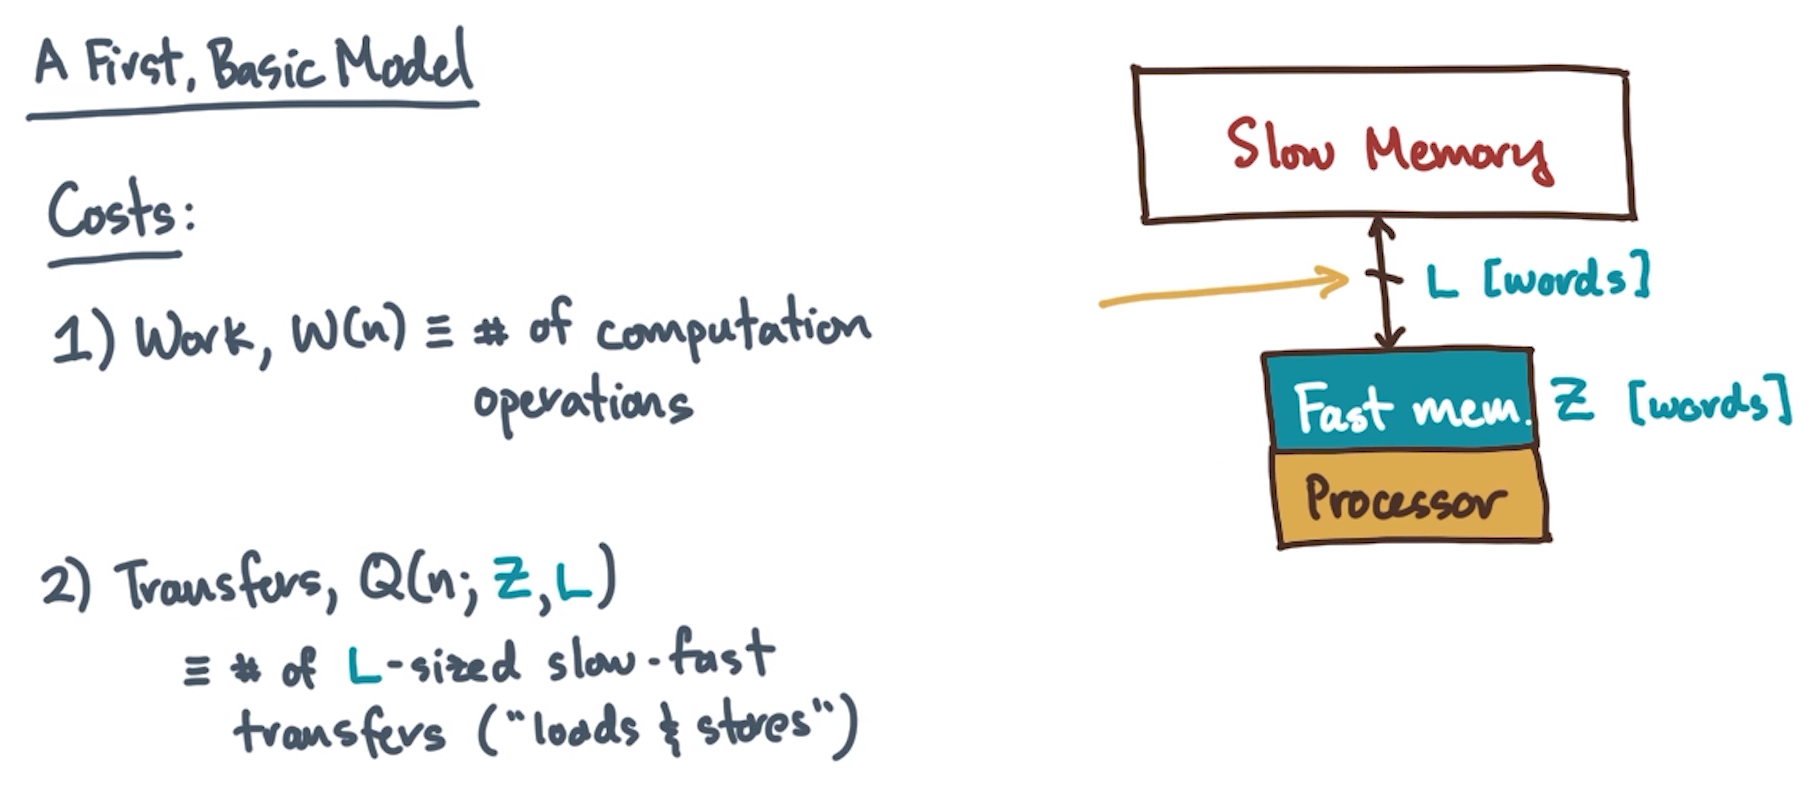 A First, Basic Model
Costs:
1) Work, W(n) ≡ # of computation
operations
2) Transfers, Q(n; Z, L)
≡ # of L-sized slow-fast
transfers ("loads & stores")
Slow Memory
L [words]
Fast mem. Z [words]
Processor